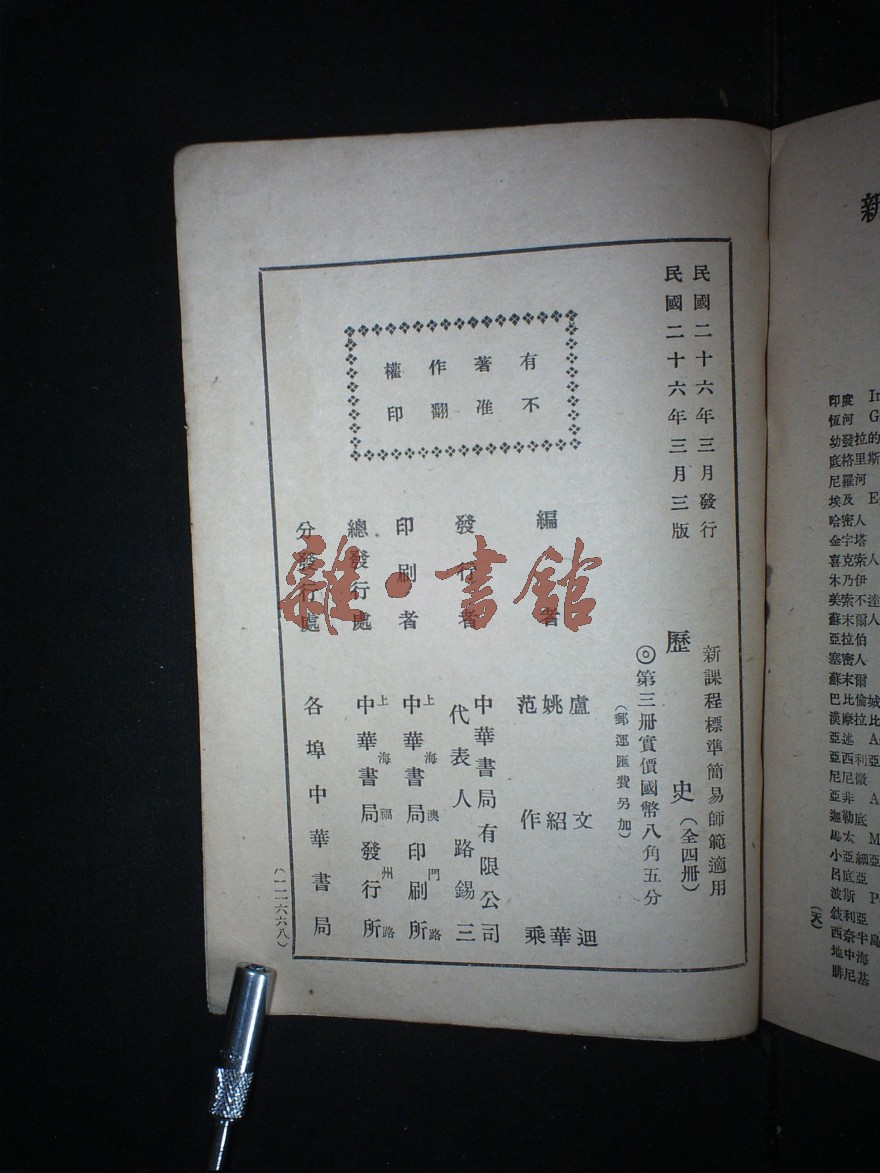 民國二十六年三月發行
民國二十六年三月三版
新課程標準簡易師範適用
歷史（全四册）
◎第三册實價國幣八角五分
（郵運匯費另加）
有著作權
不准翻印
編者
盧文迴
姚紹華
范作乘
發行者
中華書局有限公司
代表人路錫三
印刷者
上海澳門路
中華書局印刷所
總發行處
上海福州路
中華書局發行所
分發行處
各埠中華書局
（一一六六八）
雜·書館
新
印度 In
恆河 G
幼發拉的
底格里斯
尼羅河
埃及 E
哈密人
金字塔
喜克索人
木乃伊
美索不達
蘇末爾人
亞拉伯
塞密人
蘇末爾
巴比倫城
漢摩拉比
亞述 A
亞西利亞
尼尼微
亞非 A
迦勒底
馬太 M
小亞細亞
呂底亞
波斯 P
敍利亞
西奈半島
地中海
腓尼基